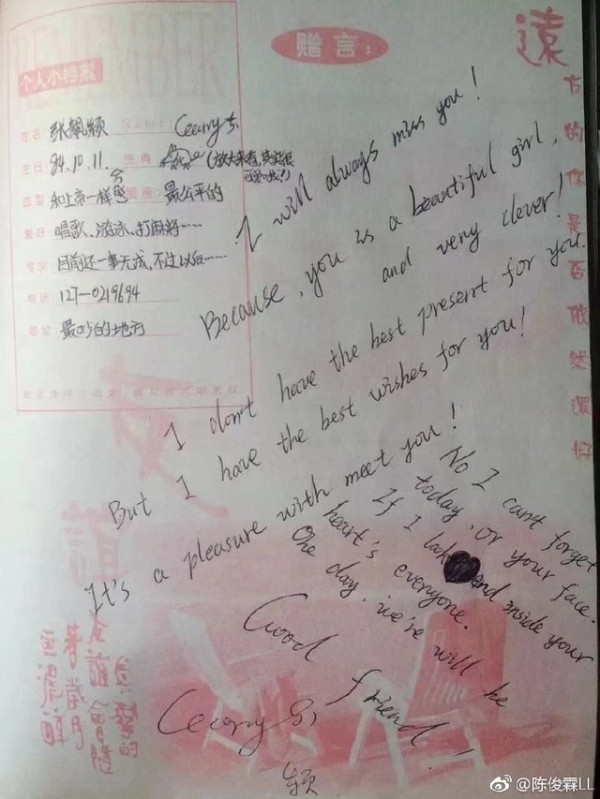 REMEMBER
赠言:
个人小档案
姓名 张靓颖 Name
生日 84.10.11. 生肖 (放大来看,其实很
可爱哦!)
和上帝一样 最公平的
爱好 唱歌、游泳、打麻将……
专长 目前还一事无成,不过以后……
电话 127-0219694
地址 最吵的地方
I will always miss you!
Because, you is a beautiful girl,
and very clever!
I don't have the best present for you.
But I have the best wishes for you!
It's a pleasure with meet you!
No I can't forget
today, or your face.
If I look and inside your
heart's everyone.
One day, we're will be
Good friend!
颖
遠方的你是否依然還好
友誼
真摯的
友誼會隨
著歲月
更濃醇
@陈俊霖LL